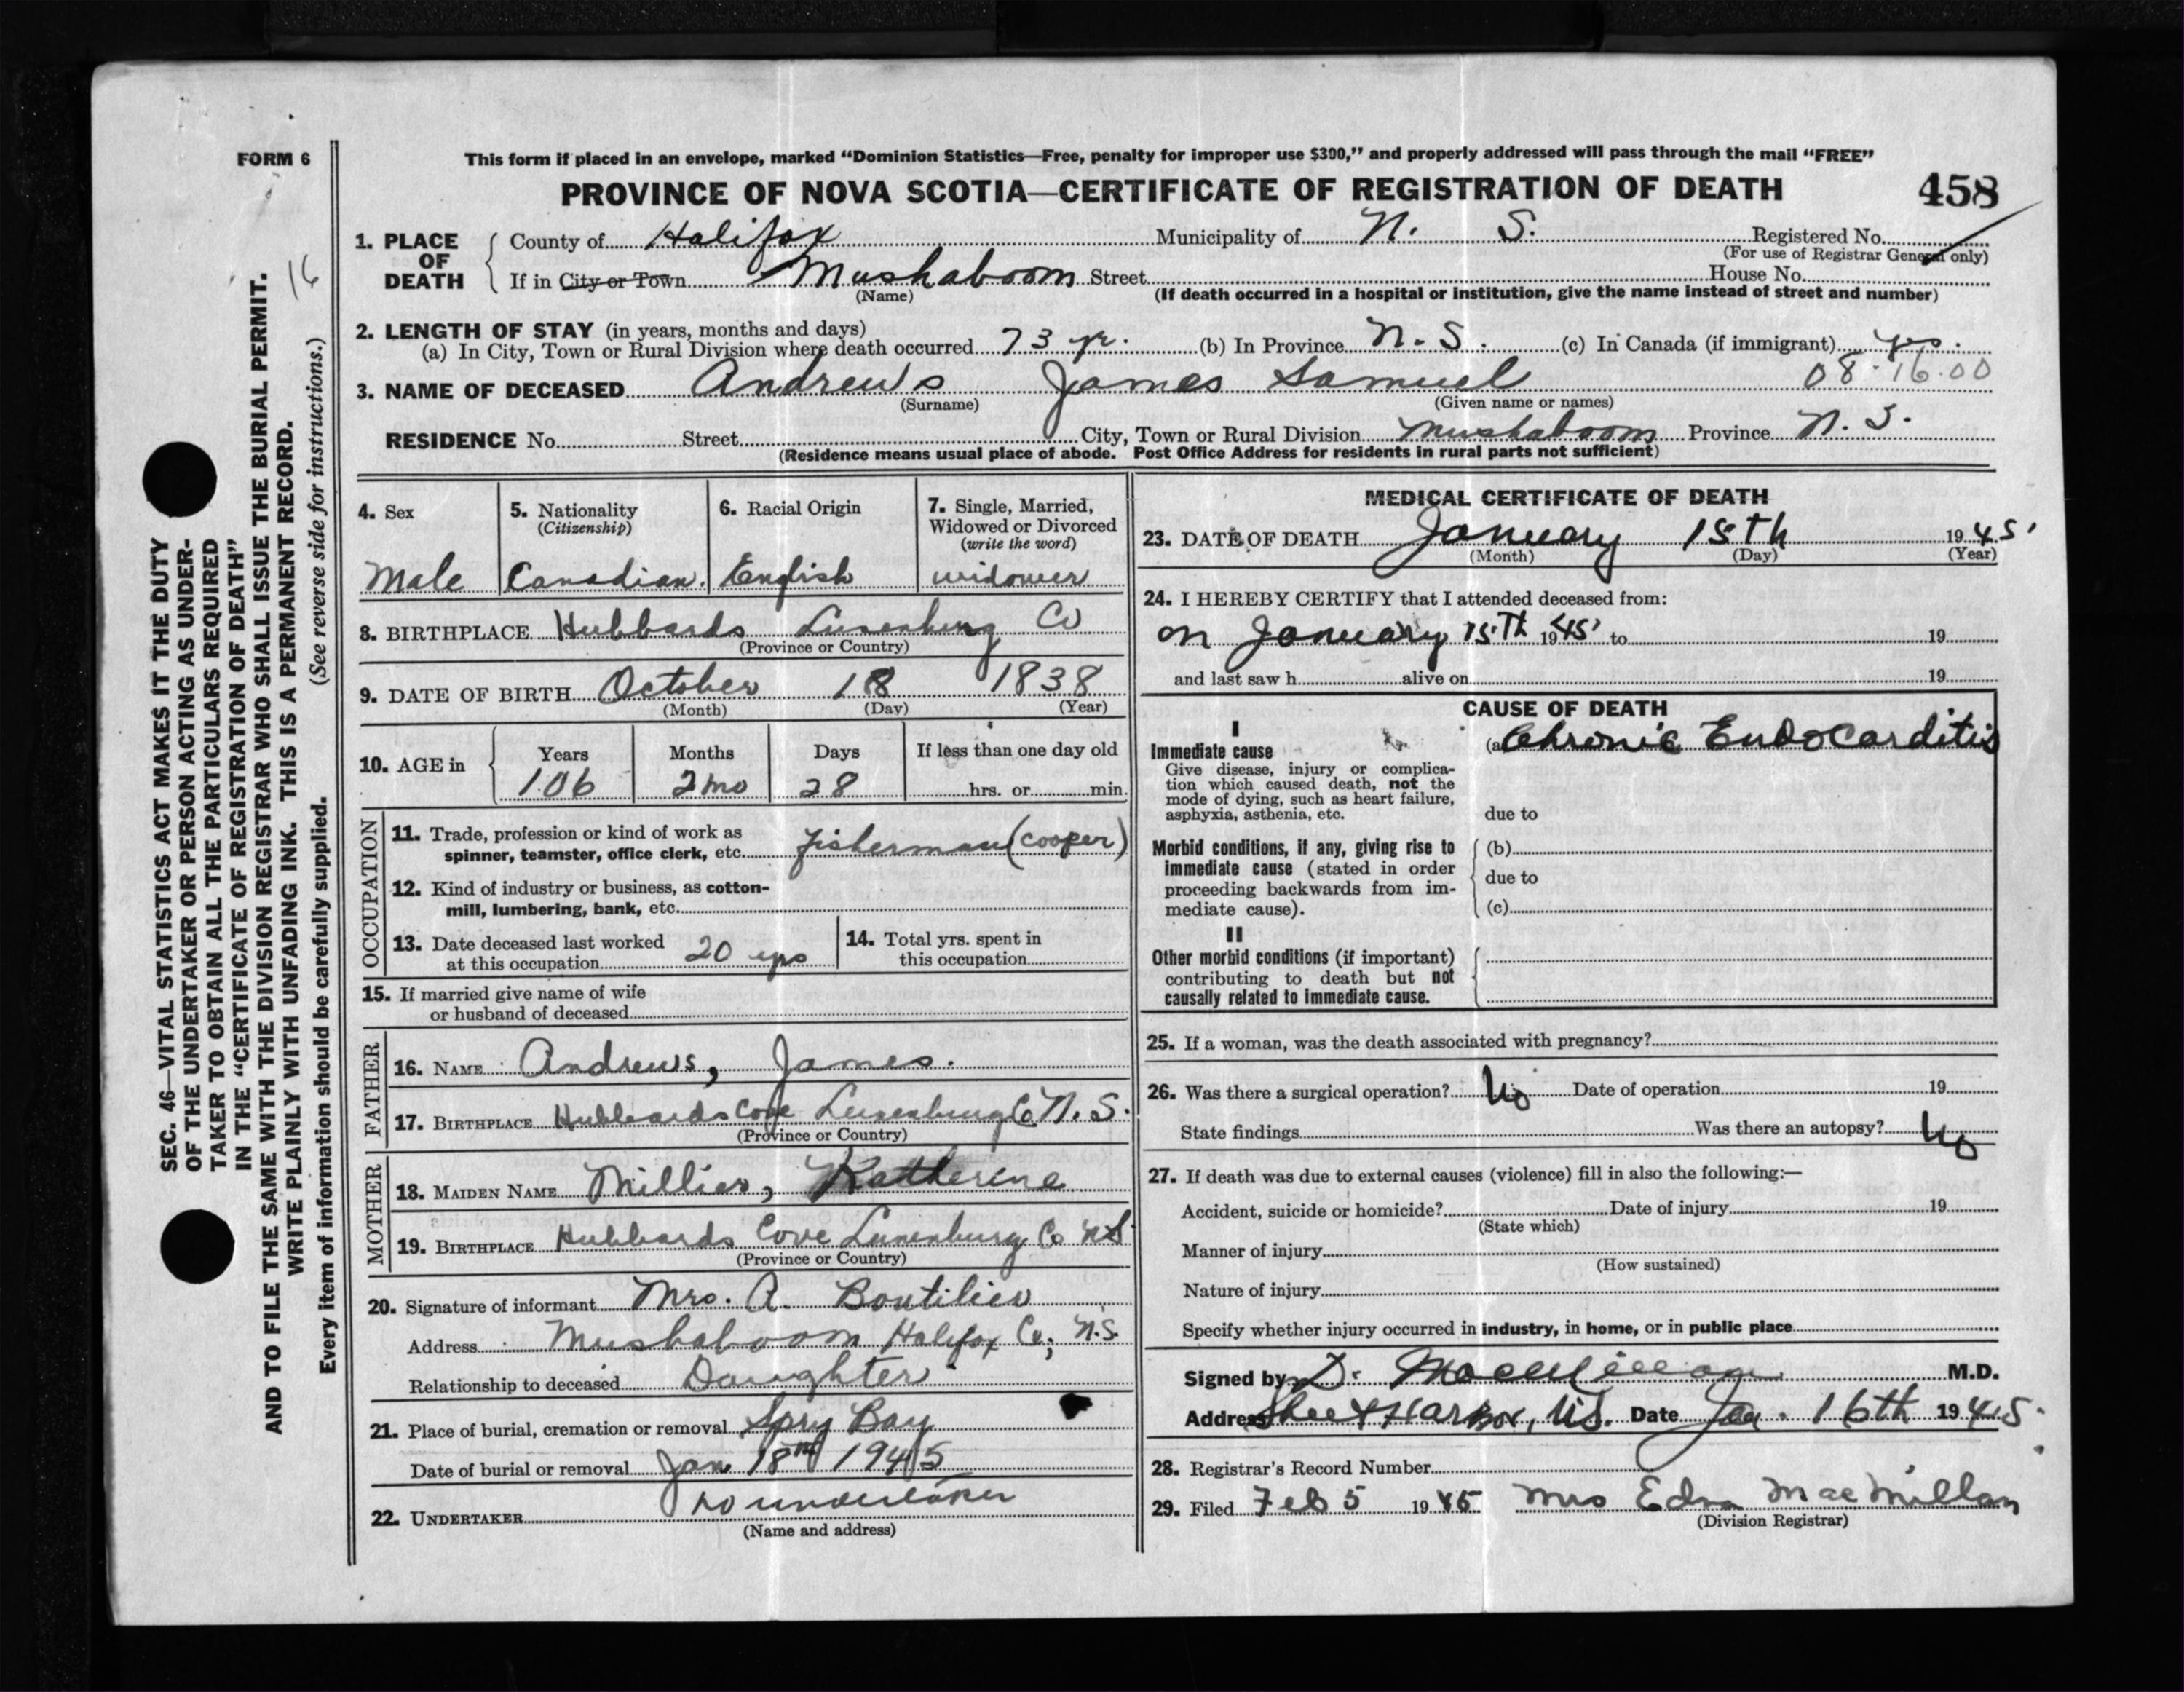 FORM 6
This form if placed in an envelope, marked “Dominion Statistics—Free, penalty for improper use $300,” and properly addressed will pass through the mail “FREE”
PROVINCE OF NOVA SCOTIA—CERTIFICATE OF REGISTRATION OF DEATH 458
1. PLACE OF DEATH
County of Halifax Municipality of N. S. Registered No.
(For use of Registrar General only)
If in City or Town Mushaboom Street House No.
(Name) (If death occurred in a hospital or institution, give the name instead of street and number)
2. LENGTH OF STAY (in years, months and days)
(a) In City, Town or Rural Division where death occurred 73 yr. (b) In Province N. S. (c) In Canada (if immigrant) yes.
3. NAME OF DECEASED Andrews James Samuel 08.16.00
(Surname) (Given name or names)
RESIDENCE No. Street City, Town or Rural Division Mushaboom Province N. S.
(Residence means usual place of abode. Post Office Address for residents in rural parts not sufficient)
4. Sex
Male
5. Nationality
(Citizenship)
Canadian.
6. Racial Origin
English
7. Single, Married,
Widowed or Divorced
(write the word)
widower
8. BIRTHPLACE Hubbards Lunenburg Co
(Province or Country)
9. DATE OF BIRTH October 18 1838
(Month) (Day) (Year)
10. AGE in
Years Months Days If less than one day old
106 2mo 28 hrs. or min.
OCCUPATION
11. Trade, profession or kind of work as
spinner, teamster, office clerk, etc. fisherman (cooper)
12. Kind of industry or business, as cotton-
mill, lumbering, bank, etc.
13. Date deceased last worked
at this occupation 20 yrs
14. Total yrs. spent in
this occupation
15. If married give name of wife
or husband of deceased
FATHER
16. NAME Andrews, James.
17. BIRTHPLACE Hubbards Cove Lunenburg Co N. S.
(Province or Country)
MOTHER
18. MAIDEN NAME Millier, Katherine
19. BIRTHPLACE Hubbards Cove Lunenburg Co N S
(Province or Country)
20. Signature of informant Mrs. A. Boutilier
Address Mushaboom Halifax Co; N.S.
Relationship to deceased Daughter
21. Place of burial, cremation or removal Spry Bay
Date of burial or removal Jan 18th 1945
22. UNDERTAKER no undertaker
(Name and address)
MEDICAL CERTIFICATE OF DEATH
23. DATE OF DEATH January 15th 1945
(Month) (Day) (Year)
24. I HEREBY CERTIFY that I attended deceased from:
on January 15th 1945 to 19
and last saw h alive on 19
CAUSE OF DEATH
I
Immediate cause (a) Chronic Endocarditis
Give disease, injury or complica-
tion which caused death, not the
mode of dying, such as heart failure,
asphyxia, asthenia, etc. due to
Morbid conditions, if any, giving rise to (b)
immediate cause (stated in order
proceeding backwards from im- due to
mediate cause). (c)
II
Other morbid conditions (if important)
contributing to death but not
causally related to immediate cause.
25. If a woman, was the death associated with pregnancy?
26. Was there a surgical operation? No Date of operation 19
State findings Was there an autopsy? No
27. If death was due to external causes (violence) fill in also the following:—
Accident, suicide or homicide? Date of injury 19
(State which)
Manner of injury
(How sustained)
Nature of injury
Specify whether injury occurred in industry, in home, or in public place
Signed by D. MacMillan M.D.
Address Sheet Harbor, N.S. Date Jan. 16th 1945.
28. Registrar's Record Number
29. Filed Feb 5 1945 Mrs Edna MacMillan
(Division Registrar)
SEC. 46—VITAL STATISTICS ACT MAKES IT THE DUTY
OF THE UNDERTAKER OR PERSON ACTING AS UNDER-
TAKER TO OBTAIN ALL THE PARTICULARS REQUIRED
IN THE “CERTIFICATE OF REGISTRATION OF DEATH”
AND TO FILE THE SAME WITH THE DIVISION REGISTRAR WHO SHALL ISSUE THE BURIAL PERMIT.
WRITE PLAINLY WITH UNFADING INK. THIS IS A PERMANENT RECORD.
Every item of information should be carefully supplied. (See reverse side for instructions.)
16